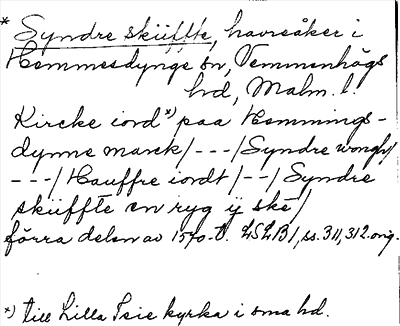 * Syndre sküffte, havreåker i
Hemmesdynge sn, Vemmenhögs
hd, Malm. l.
Kircke iord *) paa Hemmings-
dynne marck/---/Syndre wongh/
---/Hauffre iordt/--/Syndre
sküffte en ryg ÿ ske/
förra delen av 1570-t. LSLB1, ss. 311, 312. orig.
*) till Lilla Isie kyrka i sma hd.